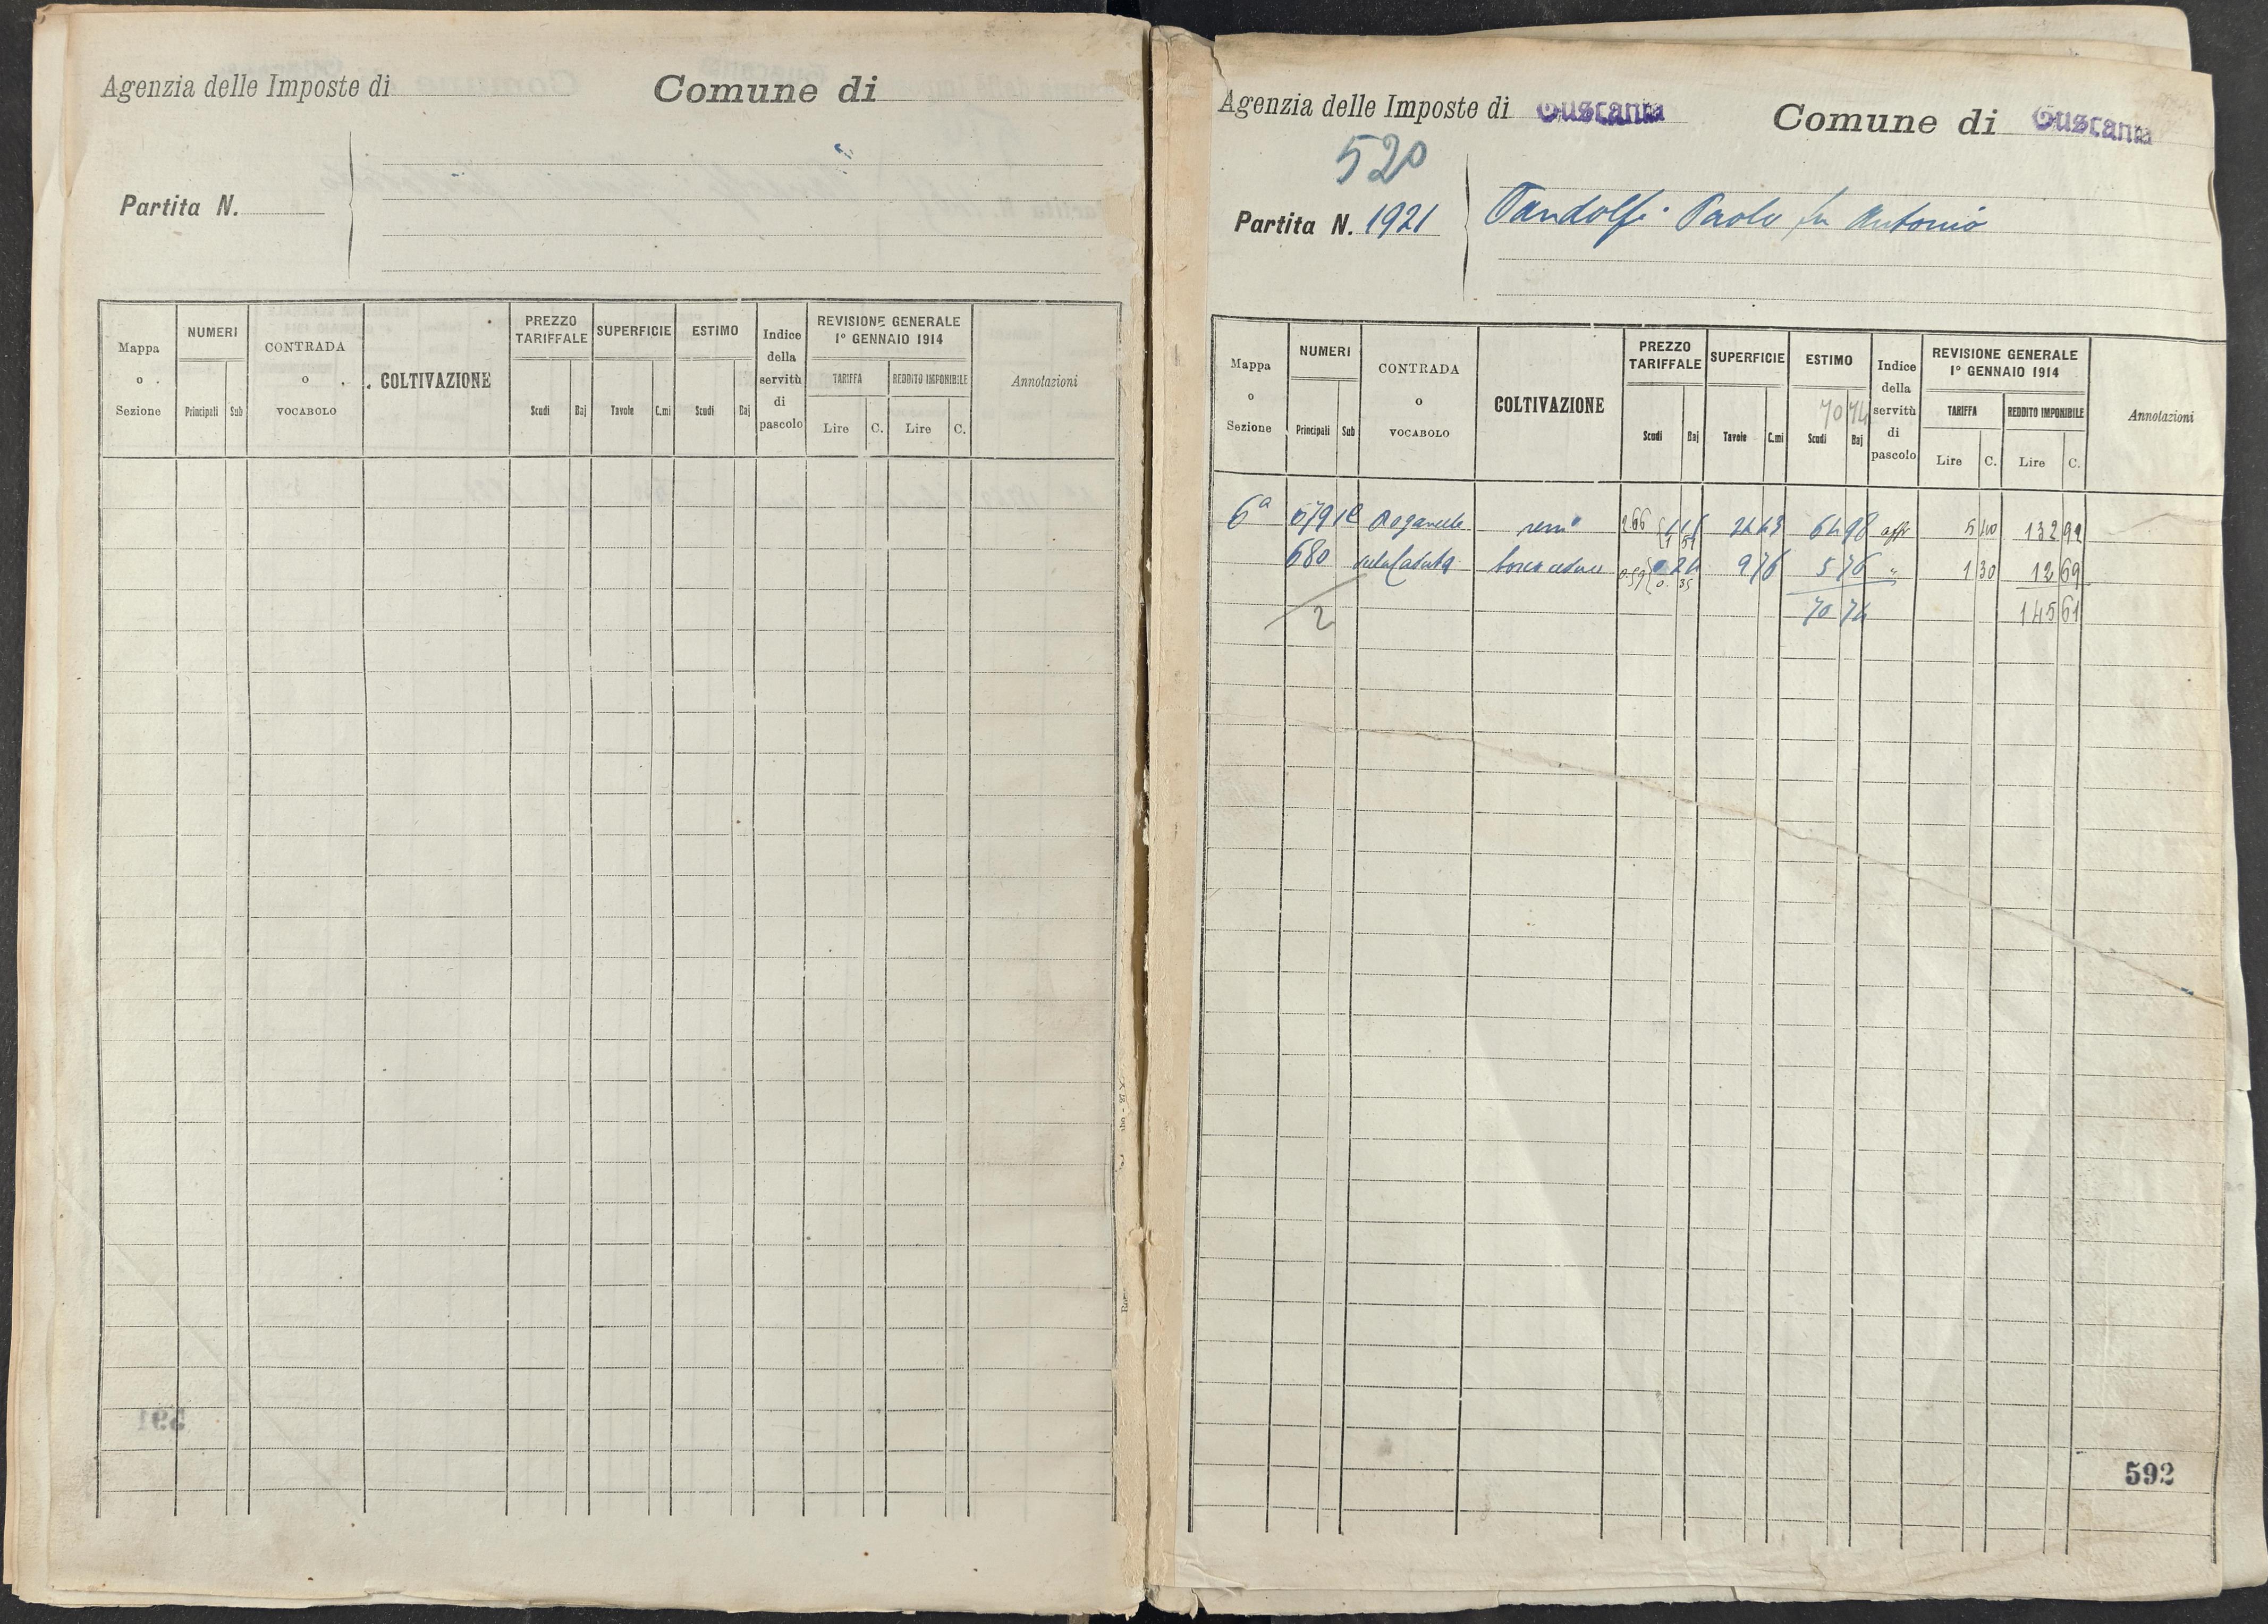 Agenzia delle Imposte di
Comune di
Partita N.
Mappa o Sezione
NUMERI
Principali Sub
CONTRADA o VOCABOLO
COLTIVAZIONE
PREZZO TARIFFALE
Scudi Baj
SUPERFICIE
Tavole C.mi
ESTIMO
Scudi Baj
Indice della servitù di pascolo
REVISIONE GENERALE
1º GENNAIO 1914
TARIFFA
Lire C.
REDDITO IMPONIBILE
Lire C.
Annotazioni
591
Agenzia delle Imposte di Tuscania
Comune di Tuscania
520
Partita N. 1921
Pandolfi Paolo fu Antonio
Mappa o Sezione
NUMERI
Principali Sub
CONTRADA o VOCABOLO
COLTIVAZIONE
PREZZO TARIFFALE
Scudi Baj
SUPERFICIE
Tavole C.mi
ESTIMO
70 74
Scudi Baj
Indice della servitù di pascolo
REVISIONE GENERALE
1º GENNAIO 1914
TARIFFA
Lire C.
REDDITO IMPONIBILE
Lire C.
Annotazioni
6ª 679 semº 2.66 24 43 64 98 5 40 132 92
680 bosco ceduo 0.59 0. 35 9 76 5 76 " 1 30 12 69
2 70 74 145 61
592